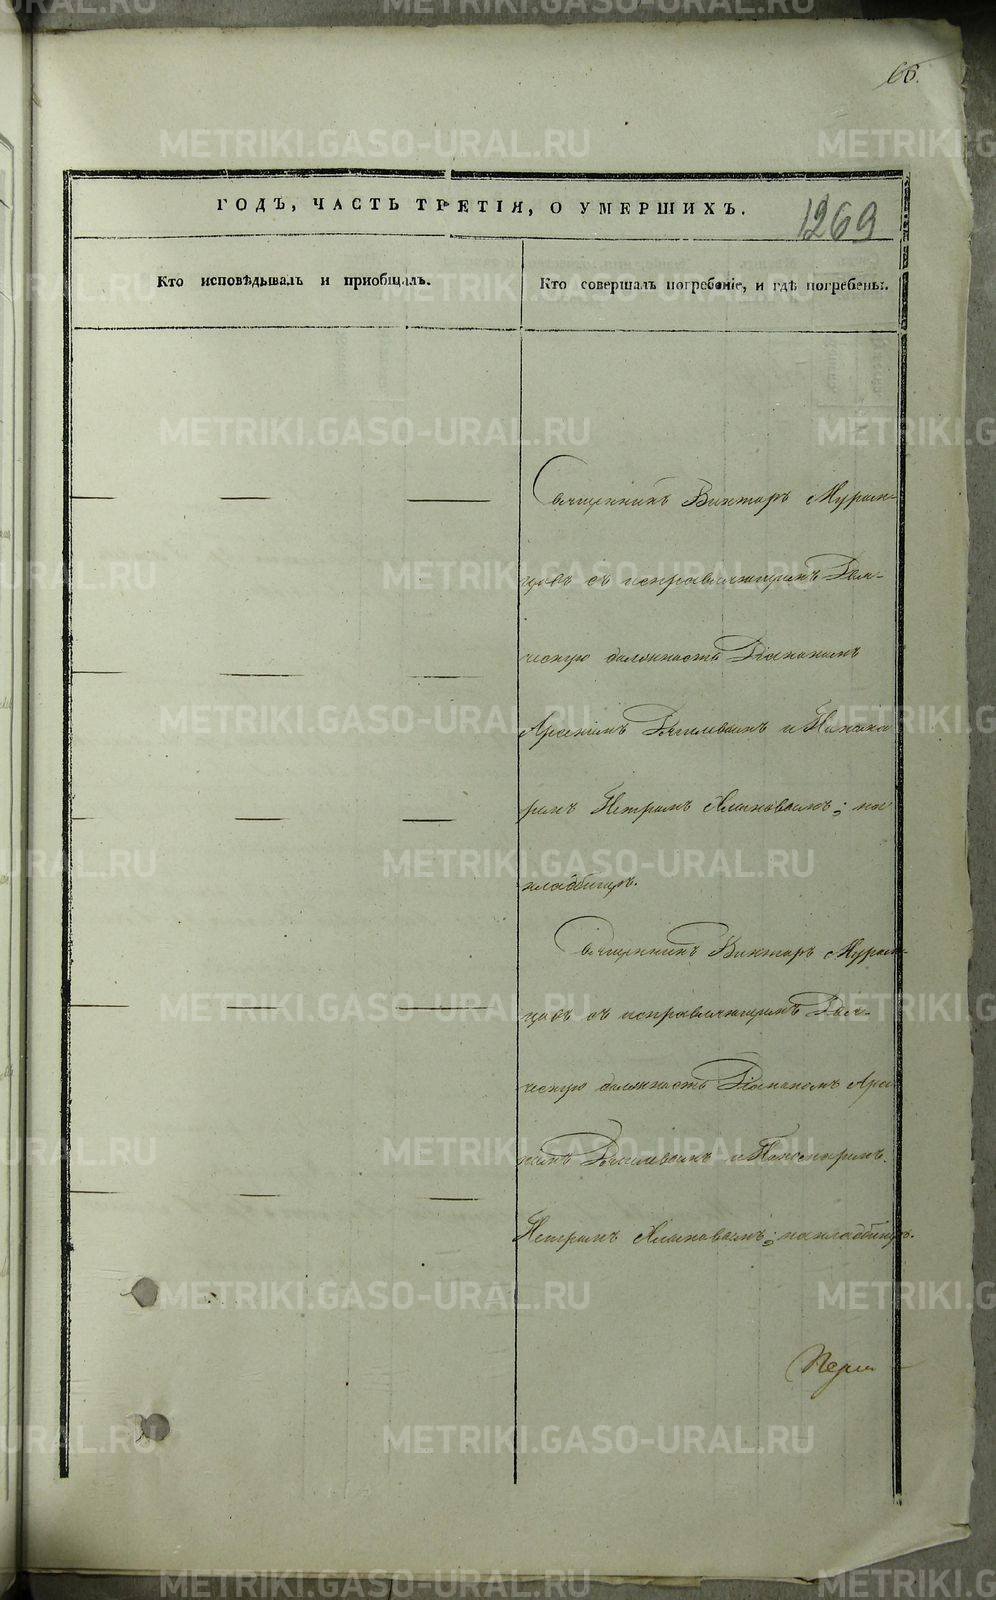 66.
ГОДЪ, ЧАСТЬ ТРЕТІЯ, О УМЕРШИХЪ.
1269
Кто исповѣдывалъ и приобщалъ.
Кто совершалъ погребеніе, и гдѣ погребены.
Священникъ Викторъ
съ исправляющимъ
ческую должность Діакономъ
Арсеніемъ и Понома
ремъ Петромъ на
кладбищѣ.
Священникъ Викторъ
съ исправляющимъ
ческую должность Діакономъ Арсе
ніемъ и Пономаремъ
Петромъ на кладбищѣ.
METRIKI.GASO-URAL.RU